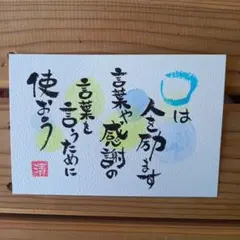 口は
人を励ます
言葉や感謝の
言葉を言うために
使おう